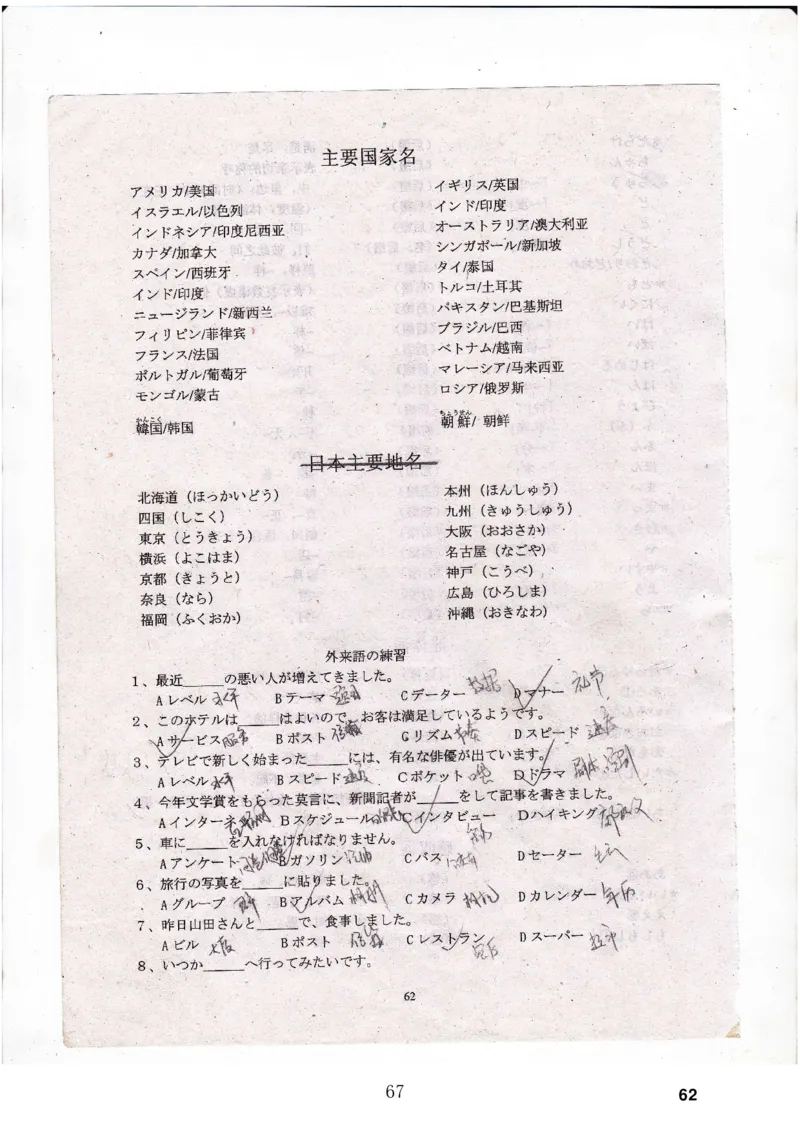 主要国家名
アメリカ/美国
イスラエル/以色列
インドネシア/印度尼西亚
カナダ/加拿大
スペイン/西班牙
インド/印度
ニュージランド/新西兰
フィリピン/菲律宾
フランス/法国
ポルトガル/葡萄牙
モンゴル/蒙古
かんこく
韓国/韩国
イギリス/英国
インド/印度
オーストラリア/澳大利亚
シンガポール/新加坡
タイ/泰国
トルコ/土耳其
パキスタン/巴基斯坦
ブラジル/巴西
ベトナム/越南
マレーシア/马来西亚
ロシア/俄罗斯
ちょうせん
朝鮮/ 朝鲜
日本主要地名
北海道（ほっかいどう）
四国（しこく）
東京（とうきょう）
横浜（よこはま）
京都（きょうと）
奈良（なら）
福岡（ふくおか）
本州（ほんしゅう）
九州（きゅうしゅう）
大阪（おおさか）
名古屋（なごや）
神戸（こうべ）
広島（ひろしま）
沖縄（おきなわ）
外来語の練習
1、最近＿＿＿の悪い人が増えてきました。
Aレベル 水平 Bテーマ 题目 Cデーター 数据 Dマナー 礼节
2、このホテルは＿＿＿はよいので、お客は満足しているようです。
Aサービス 服务 Bポスト 信箱 Cリズム 节奏 Dスピード 速度
3、テレビで新しく始まった＿＿＿には、有名な俳優が出ています。
Aレベル 水平 Bスピード 速度 Cポケット Dドラマ
4、今年文学賞をもらった莫言に、新聞記者が＿＿＿をして記事を書きました。
Aインターネ Bスケジュール Cインタビュー Dハイキング
5、車に＿＿＿を入れなければなりません。
Aアンケート Bガソリン Cバス Dセーター
6、旅行の写真を＿＿＿に貼りました。
Aグループ Bアルバム 相册 Cカメラ 相机 Dカレンダー 年历
7、昨日山田さんと＿＿＿で、食事しました。
Aビル 大厦 Bポスト 信箱 Cレストラン Dスーパー 超市
8、いつか＿＿＿へ行ってみたいです。
62
67
62